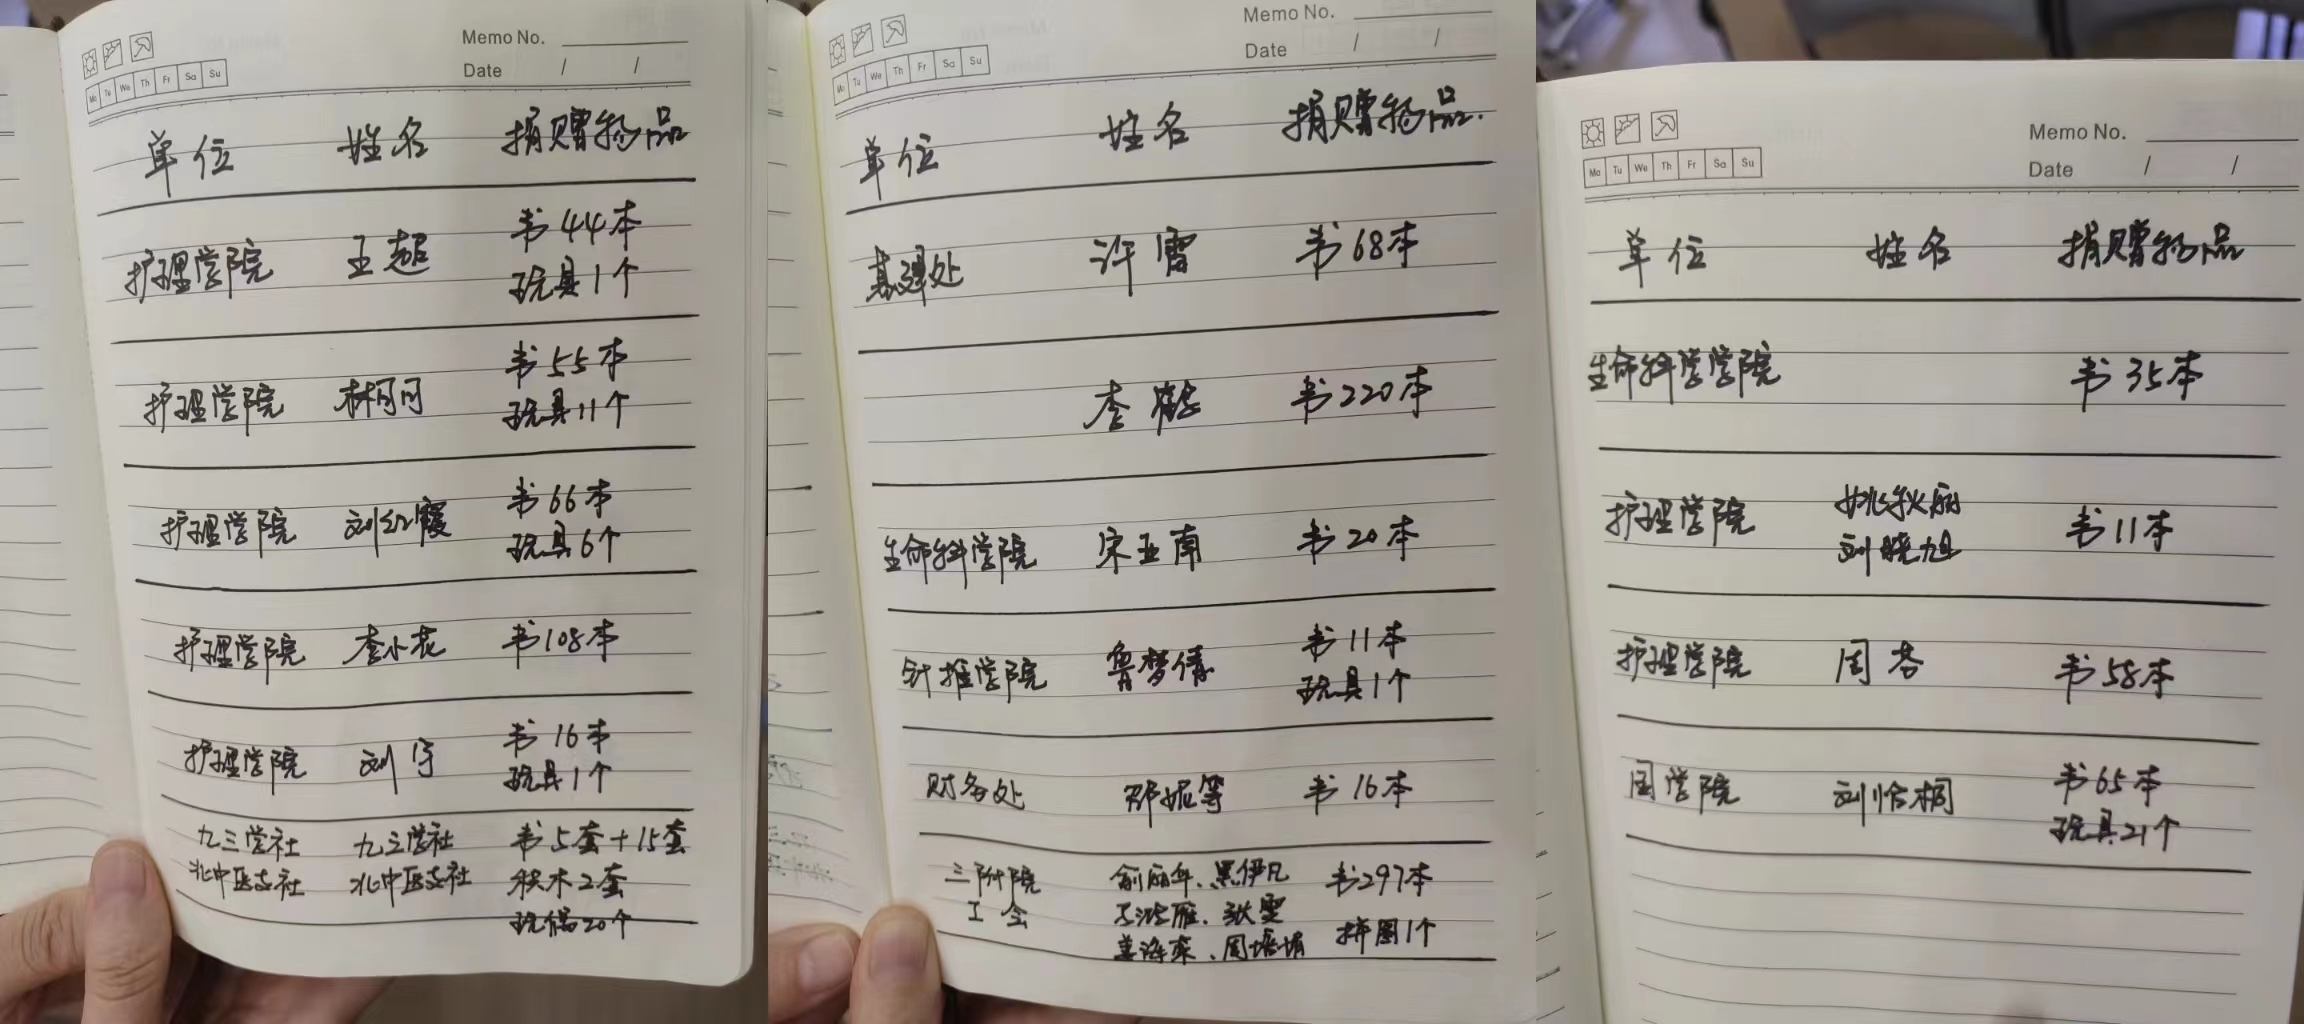 Memo No.
Mo Tu We Th Fr Sa Su
Date / /
单位 姓名 捐赠物品
护理学院 王超 书44本
玩具1个
护理学院 林可可 书55本
玩具11个
护理学院 刘红霞 书66本
玩具6个
护理学院 李小花 书108本
护理学院 刘宇 书16本
玩具1个
九三学社 九三学社 书5套+15套
北中医支社 北中医支社 积木2套
玩偶20个
Memo No.
Mo Tu We Th Fr Sa Su
Date / /
单位 姓名 捐赠物品.
基建处 许雷 书68本
李鹤 书220本
生命科学院 宋亚南 书20本
针推学院 鲁梦倩 书11本
玩具1个
财务处 邓妮等 书16本
三附院 俞丽华、黑伊凡 书297本
工会 张雯
周培娟 拼图1个
Memo No.
Mo Tu We Th Fr Sa Su
Date / /
单位 姓名 捐赠物品
生命科学学院 书35本
护理学院 姚秋丽 书11本
刘晓旭
护理学院 周芬 书58本
国学院 刘怡桐 书65本
玩具21个